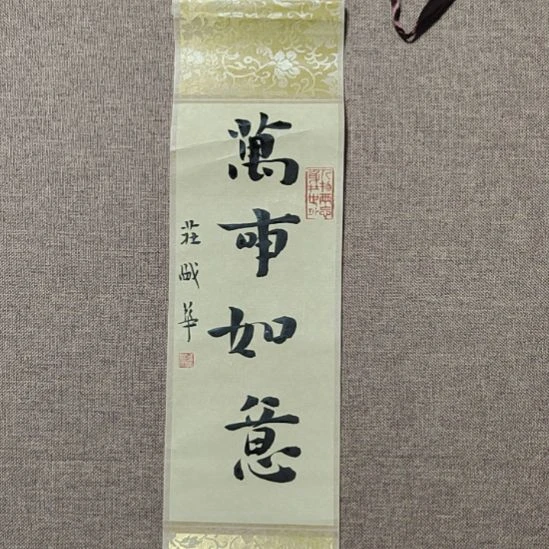 萬事如意
莊
華